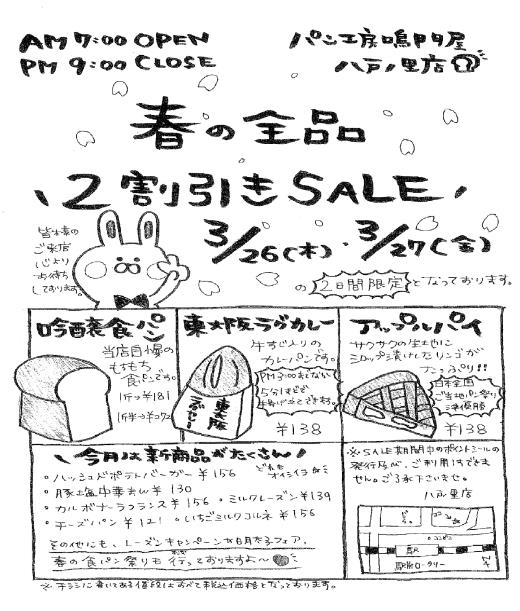 AM 7:00 OPEN
PM 9:00 CLOSE
パン工房鳴門屋
八戸ノ里店
春の全品
2割引きSALE
3/26(木)・3/27(金)
の2日間限定となっております。
皆様の
ご来店
心より
お待ち
しております。
吟醸食パン
当店自慢の
もちもち
食パンです。
1斤→¥181
東大阪ラグカレー
牛すじ入りの
カレーパンです。
東大阪
¥138
アップルパイ
サクサクの生地に
シロップ漬けしたリンゴが
たっぷり!!
日本全国
ご当地パン祭り
準優勝
¥138
今月は新商品がたくさん
どれも
オイシイヨ
・ハッシュドポテトバーガー ¥156
・豚塩中華まん ¥130
・カルボナーラフランス ¥156 ・ミルクレーズン ¥139
・チーズパン ¥121 ・いちごミルクコルネ ¥156
その他にも、レーズンキャンペーンや明太子フェア、
春の食パン祭りも行っておりますよ〜
※SALE期間中のポイントシールの
発行及び、ご利用はできま
せん。ご了承下さいませ。
八戸ノ里店
コンビニ
駅
駅前ロータリー
※チラシに書いてある値段はすべて税込価格となっております。